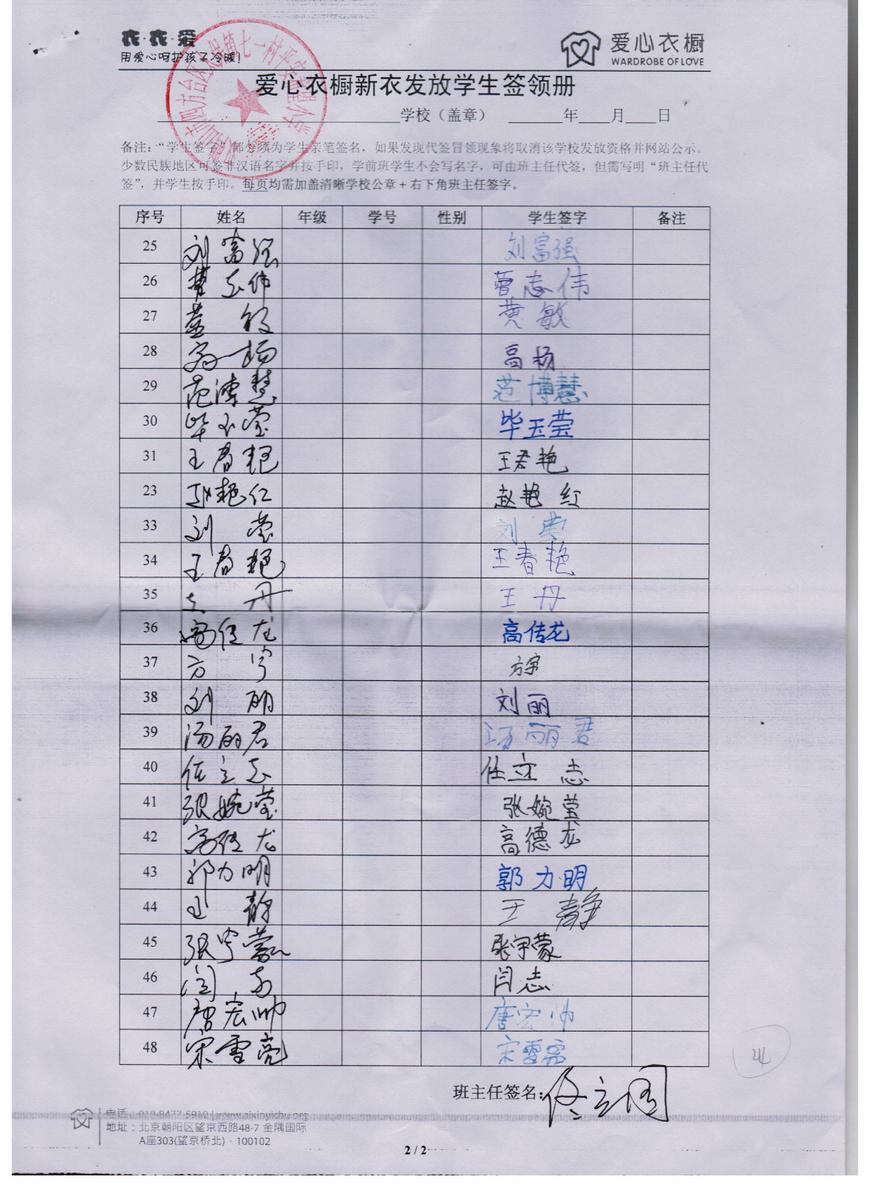 衣·衣·爱
用爱心呵护孩子冷暖!
爱心衣橱
WARDROBE OF LOVE
爱心衣橱新衣发放学生签领册
学校（盖章） 年 月 日
备注：“学生签字”都必须为学生亲笔签名，如果发现代签冒领现象将取消该学校发放资格并网站公示。
少数民族地区可签非汉语名字并按手印，学前班学生不会写名字，可由班主任代签，但需写明“班主任代
签”，并学生按手印。每页均需加盖清晰学校公章+右下角班主任签字。
序号 姓名 年级 学号 性别 学生签字 备注
25 刘富强 刘富强
26 曹志伟 曹志伟
27 黄敏 黄敏
28 高杨 高杨
29 范博慧 范博慧
30 毕玉莹 毕玉莹
31 王春艳 王君艳
23 赵艳红 赵艳红
33 刘莹 刘莹
34 王春艳 王春艳
35 王丹 王丹
36 高传龙 高传龙
37 方宇 方宇
38 刘丽 刘丽
39 汤丽君 汤丽君
40 佟立志 佟立志
41 张婉莹 张婉莹
42 高德龙 高德龙
43 郭力明 郭力明
44 王静 王静
45 张宇蒙 张宇蒙
46 闫志 闫志
47 唐宏帅 唐宏帅
48 宋雪亮 宋雪亮
班主任签名：
电话：010-8477-5910 | www.aixinyichu.org
地址：北京朝阳区望京西路48-7 金隅国际
A座303(望京桥北)·100102
2 / 2